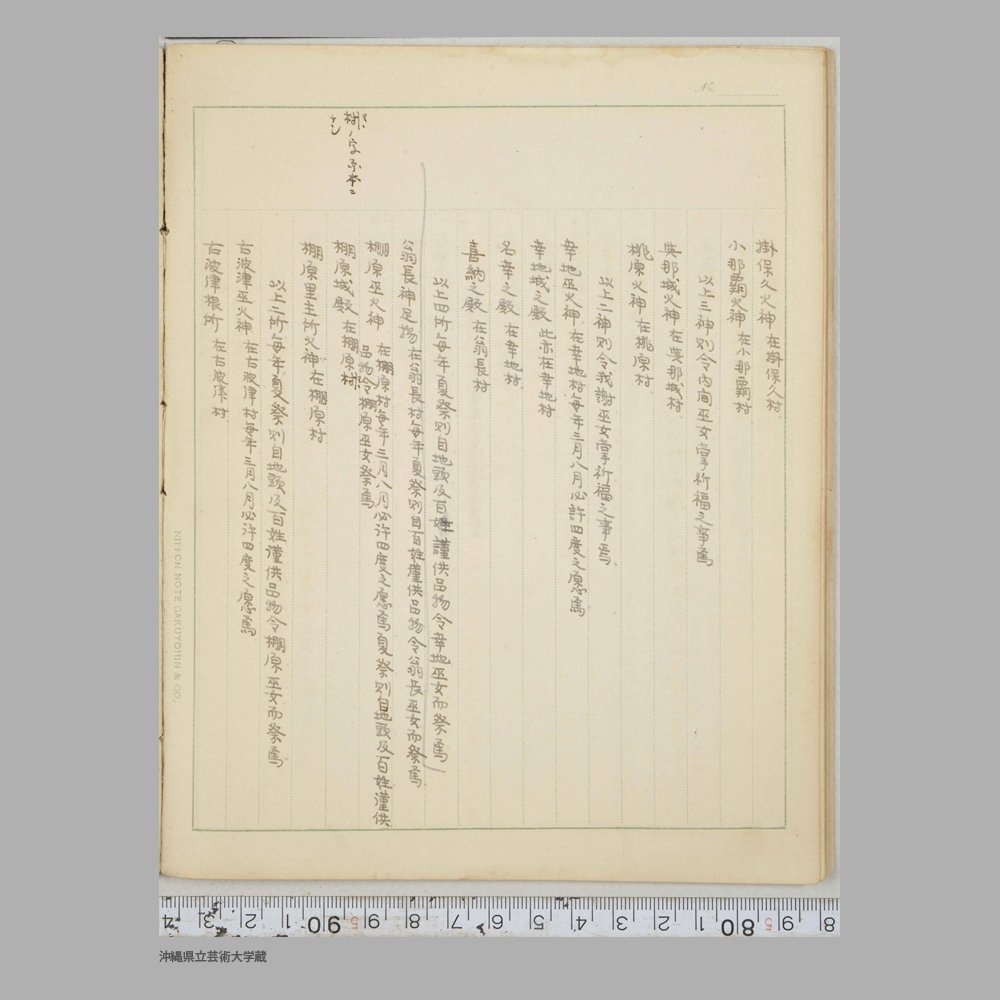 No.
掛保久火神 在掛保久村
小那覇火神 在小那覇村
以上三神則令内間巫女掌祈福之事焉
呉那城火神 在呉那城村
桃原火神 在桃原村
以上二神則令我謝巫女掌祈福之事焉
幸地巫火神 在幸地村毎年三月八月必許四度之愿焉
幸地城之殿 此亦在幸地村
名幸之殿 在幸地村
喜納之殿 在翁長村
以上四所毎年夏祭則自地頭及百姓謹供品物令幸地巫女而祭焉
翁長神足物 在翁長村毎年夏祭則自百姓謹供品物令翁長巫女而祭焉
棚原巫火神 在棚原村毎年三月八月必許四度之愿焉夏祭則自地頭及百姓謹供
品物令棚原巫女祭焉
棚原城殿 在棚原村
棚原里主所火神 在棚原村
以上二所毎年夏祭則自地頭及百姓謹供品物令棚原巫女而祭焉
右波津巫火神 在右波津村毎年三月八月必許四度之愿焉
右波津根所 在右波津村
ノ字原本ニ
ナシ
NIPPON NOTE GAKUYOHIN & CO.
4 3 2 1 90 9 5 8 7 6 5 4 3 2 1 80 9 5 8
沖縄県立芸術大学蔵